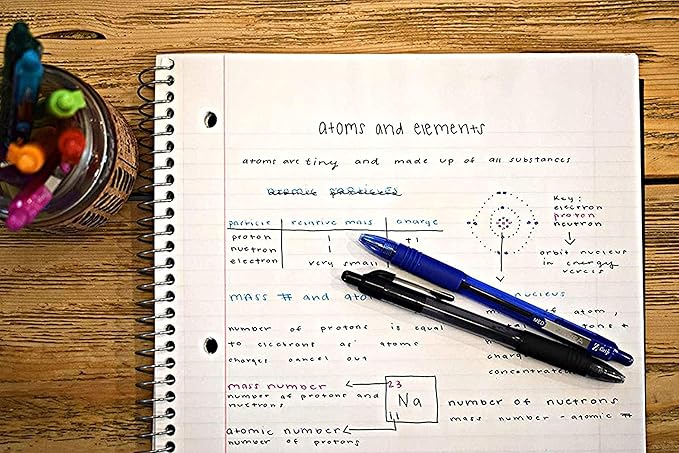 atoms and elements
atoms are tiny and made up of all substances
atomic particles
particle relative mass charge
proton 1 +1
nuetron 1
electron very small
Key:
electron
proton
neutron
orbit nucleus
in energy
mass # and
nucleus
of atom,
number of protons is equal
to electrons as atoms
charges cancel out
mass number
number of protons and
nuetrons
atomic number
number of protons
23
Na
11
number of nuetrons
mass number - atomic #
MED
Z-Grip